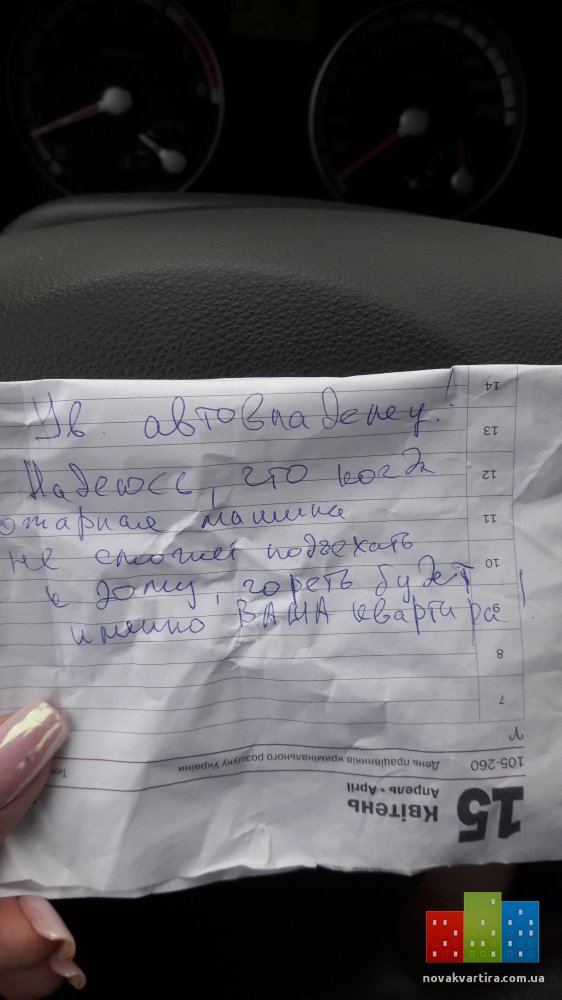 Ув. автовладелец!
Надеюсь, что когда
пожарная машина
не сможет подъехать
к дому, гореть будет
именно ВАША квартира!
14
13
12
11
10
9
8
7
105-260
День працівників кримінального розшуку України
15
Квітень
Апрель • April
novakvartira.com.ua